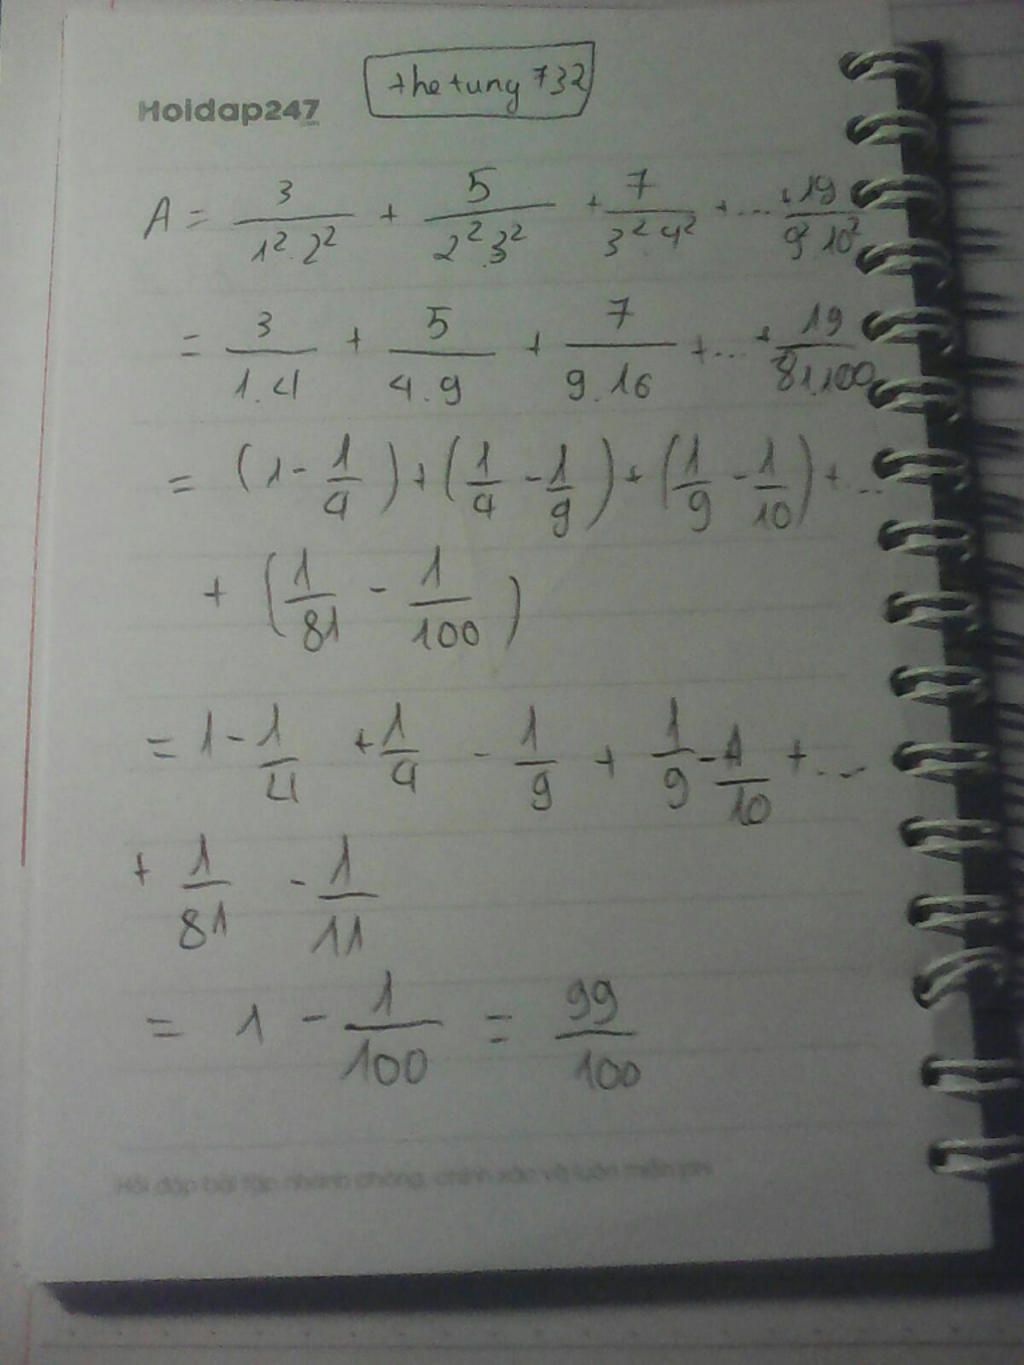 Hoidap247
thetung732
A = 3/(1².2²) + 5/(2².3²) + 7/(3².4²) + ... + 19/(9².10²)
= 3/(1.4) + 5/(4.9) + 7/(9.16) + ... + 19/(81.100)
= (1 - 1/4) + (1/4 - 1/9) + (1/9 - 1/10) + ...
+ (1/81 - 1/100)
= 1 - 1/4 + 1/4 - 1/9 + 1/9 - 1/10 + ...
+ 1/81 - 1/11
= 1 - 1/100 = 99/100
Hỏi đáp bài tập nhanh chóng, chính xác và luôn miễn phí